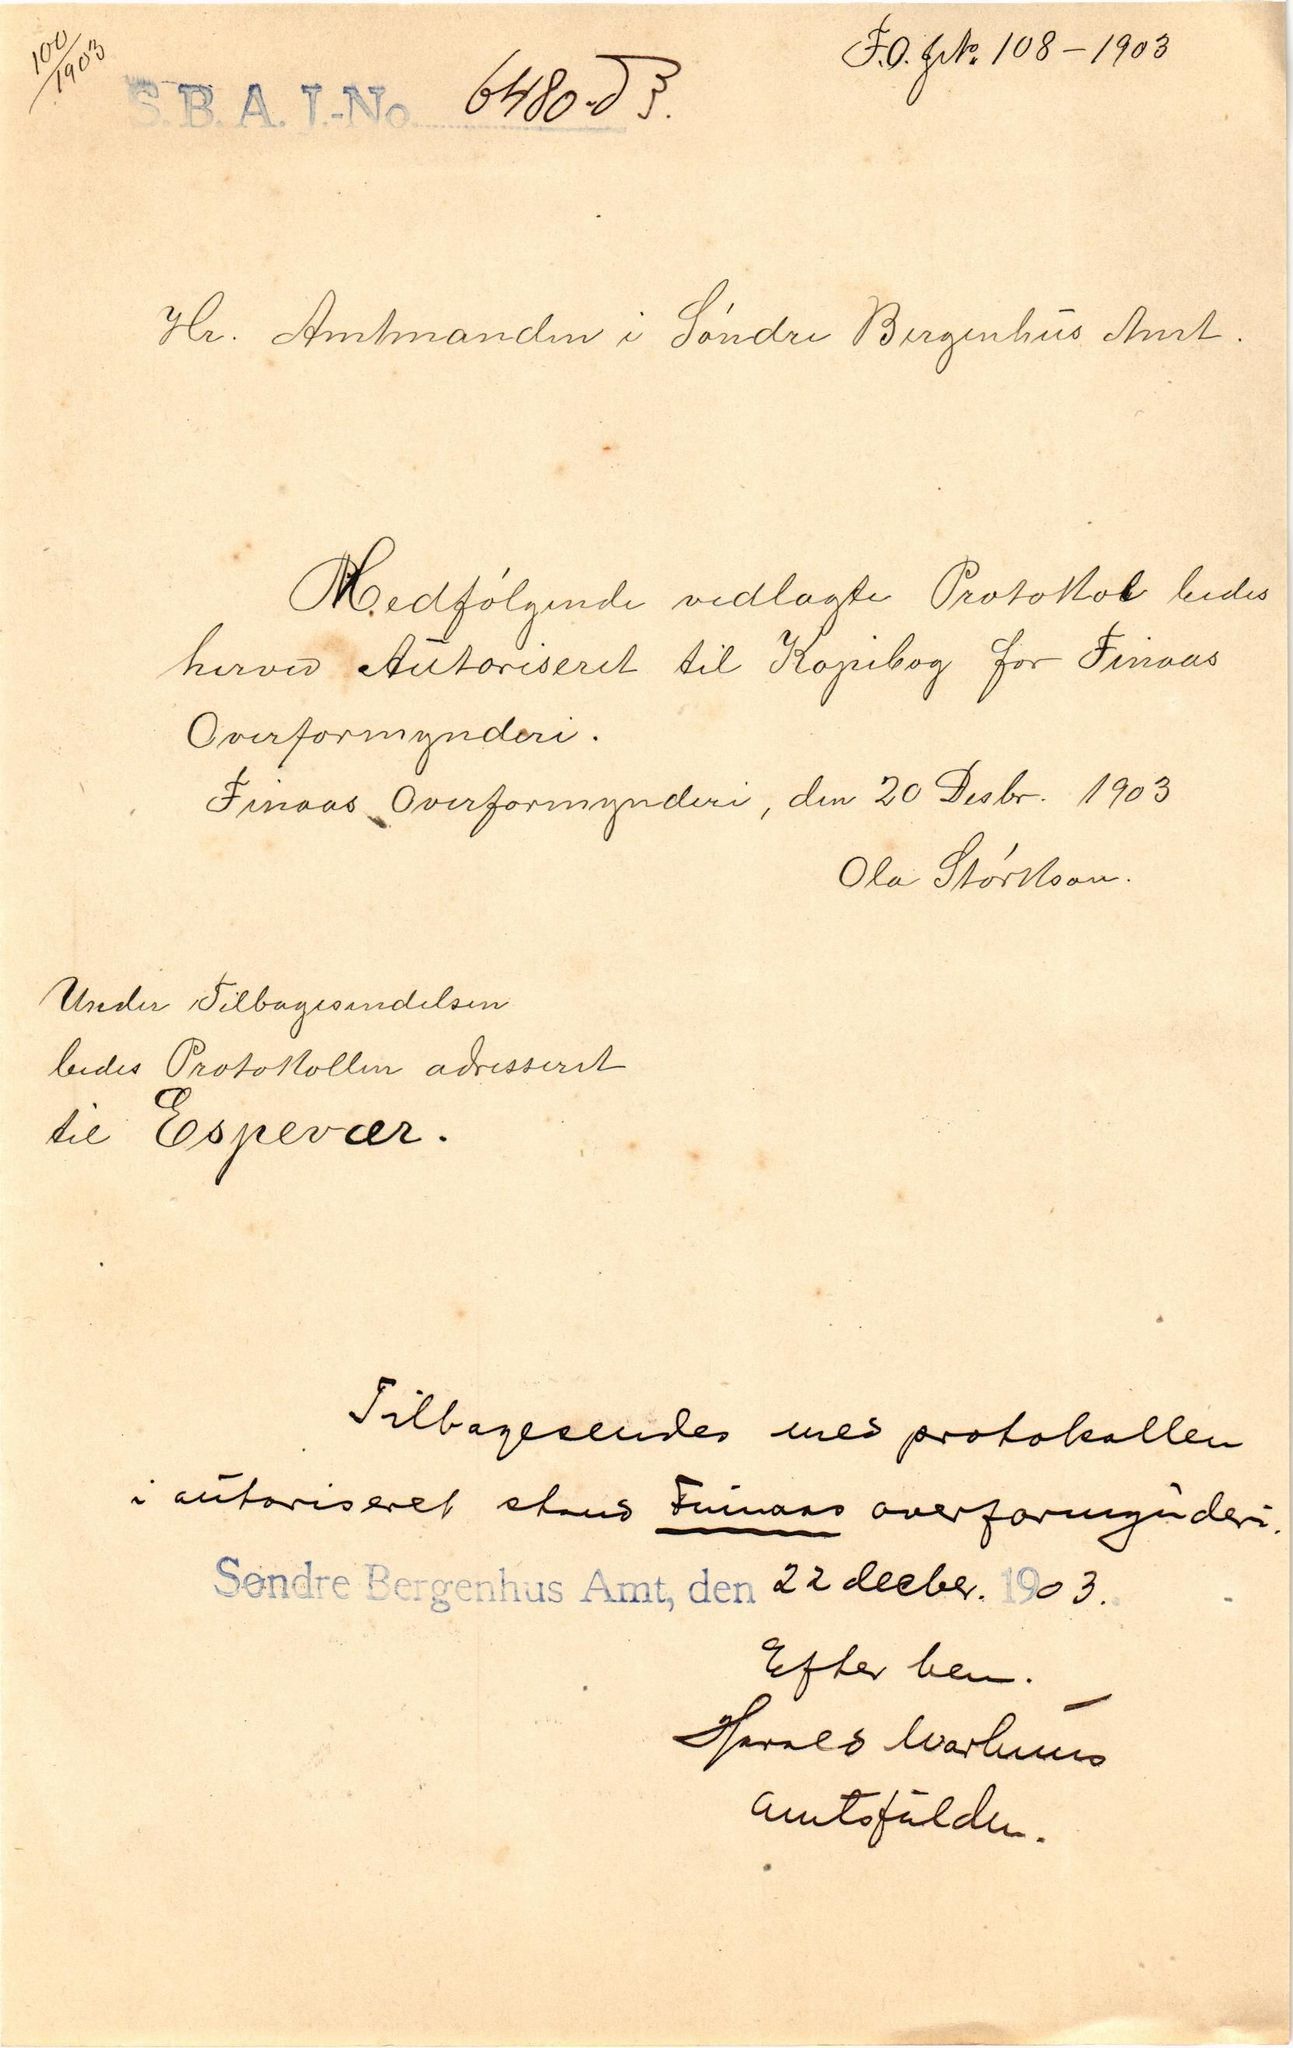 100/1903
F.O. JNr. 108-1903
S.B.A. J.-No. 6480-03.
Hr. Amtmanden i Søndre Bergenhus Amt.
Medfølgende vedlagte Protokol bedes
herved Autoriseret til Kopibog for Finaas
Overformynderi.
Finaas Overformynderi, den 20 Desbr. 1903
Ola Størkson.
Under Tilbagesendelsen
bedes Protokollen adresseret
til Espevær.
Tilbagesendes med protokollen
i autoriseret stand Finaas overformynderi.
Søndre Bergenhus Amt, den 22 decber. 1903.
Efter bem.
Harald
amtsfuldm.